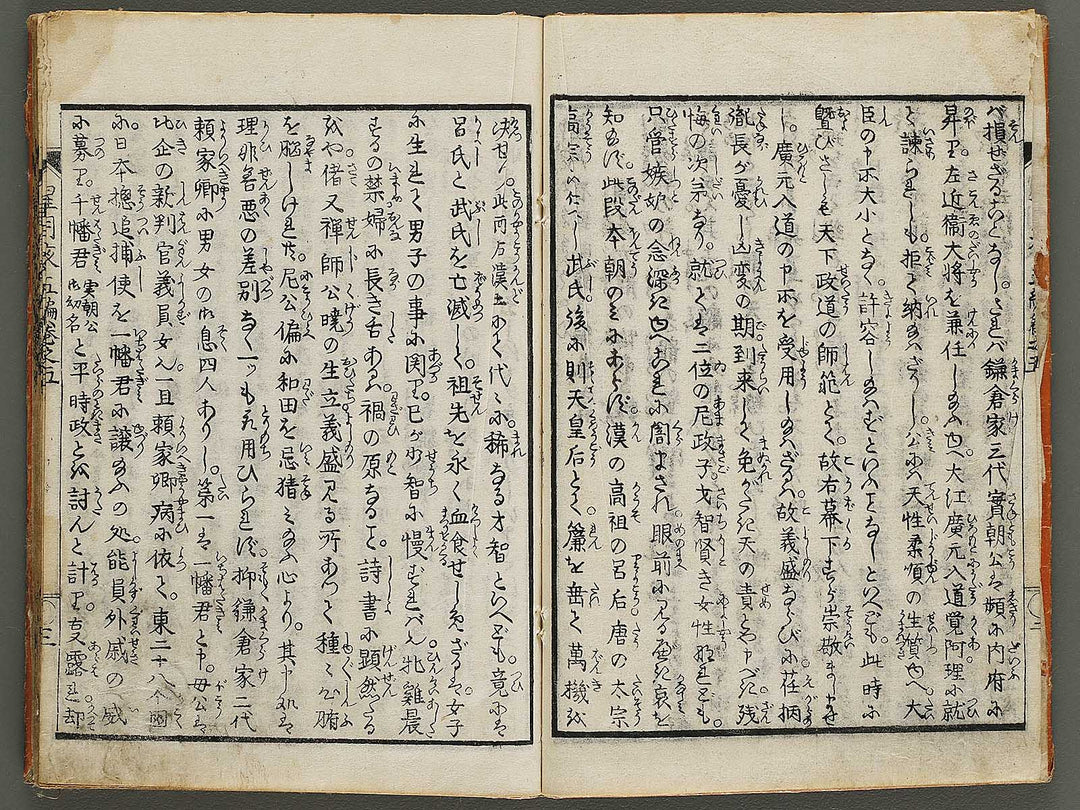 が損せざることなし。されバ鎌倉家三代實朝公ハ頻に内府に
昇り左近衛大将を兼任し給ふ也。大江廣元入道覚阿理に就
と諫られしも拒て納給はざりし。公ハ天性柔順の生質也。大
臣の中に大小となく。許容し給はずといふことなしといへども。此時に
曁びさしも天下政道の師範とて。故右幕下すら崇敬ましませ
し。廣元入道の申すを受用し給ハざるハ。故義盛ならびに荘柄
胤長が憂し凶変の期到来して免かたき天の責とや申べき残
悔の次第なり。就てハ二位の尼政子才智賢き女性なれども。
只管嫉妬の念深き也これに闇まされ眼前に見る魚哀を
知らず。此段本朝のミにあらず。漢の高祖の呂后唐の太宗
高宗に仕へし武氏。後に則天皇后とて簾を垂て萬機を
決せり。此両后漢土にて代々に稀なる才智といへども。竟にハ
呂氏と武氏を亡滅して。祖先を永く血食せしめざるハ。女子
に生れて男子の事に関り。己が少智に慢ずれバん牝雞晨
するの禁婦に長き舌あるハ。禍の原なるよし。詩書に顕然たる
をや偖又禅師公暁の生立義盛見る所あつて種々心腑
を脳しけれ共。尼公偏に和田を忌猜ミ給ふ心より。其申処ハ
理非善悪の差別なく一ツも不用ひられず。抑鎌倉家二代
頼家卿に男女の御息四人あり。第一ハ一幡君と申。母公ハ
比企の新判官義員女ん。一旦頼家卿病に依て。東二十八ヶ國
に日本摠追捕使を一幡君に譲給ふの処能員外戚の威
に募り。千幡君 実朝公御幼名 と平時政とを討んと計り。夏露れ却
五編巻之五
三